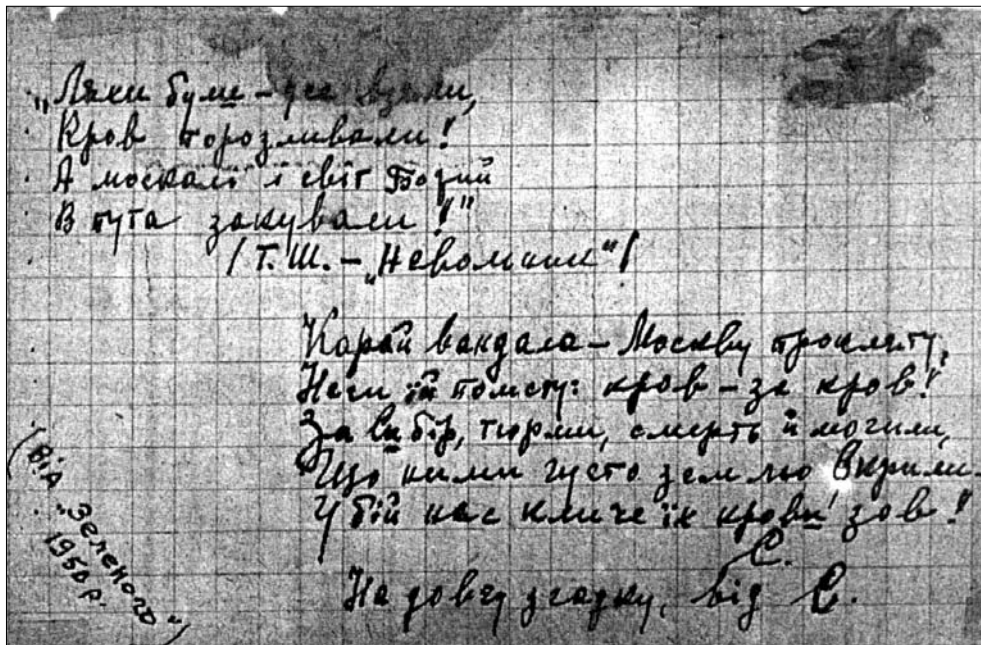 „Ляхи були – усе взяли,
Кров порозливали!
А москалі і світ Божий
В пута закували!"
/Т.Ш. – „Невольник"/
Карай вандала – Москву прокляту,
Неси їй помсту: кров – за кров!
За Сибір, тюрми, смерть й могили,
Що ними густо землю вкрили.
У бій нас кличе їх крови зов!
С.
На довгу згадку, від С.
(Від „Зеленого"
1950 р.)